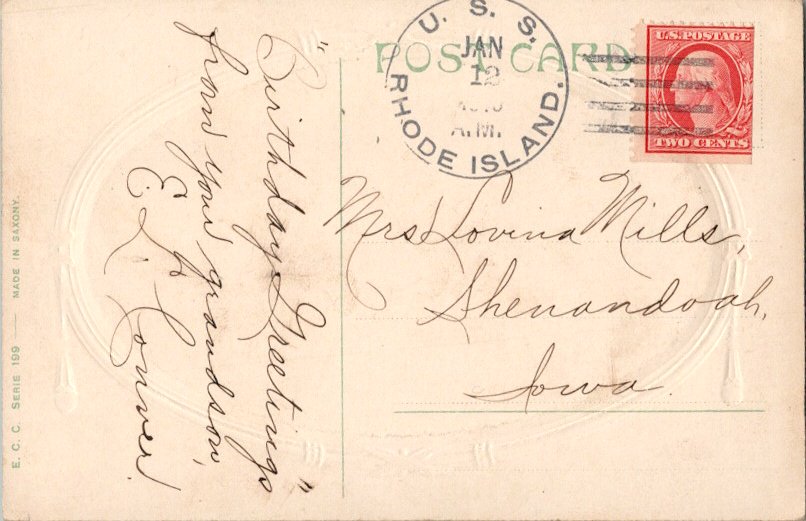 POST CARD
U. S. S.
JAN
12
A.M.
RHODE ISLAND.
U.S. POSTAGE
TWO CENTS
"Birthday Greetings"
from your grandson,
Conver.
Mrs Lovina Mills,
Shenandoah,
Iowa.
E. C. C. SERIE 199 — MADE IN SAXONY.